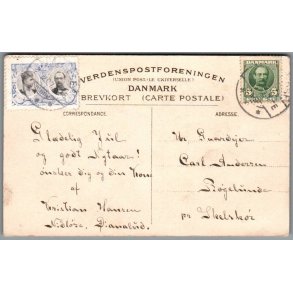 VERDENSPOSTFORENINGEN
(UNION POSTALE UNIVERSELLE)
DANMARK
BREVKORT (CARTE POSTALE)
CORRESPONDANCE.
ADRESSE.
DANMARK
5 5
Glædelig Jul
og godt Nytaar!
ønskes dig og din Kone
af
Kristian Hansen
Dianalund.
Hr. Gaardejer
Carl Andersen
Bøgelunde
pr Skelskör